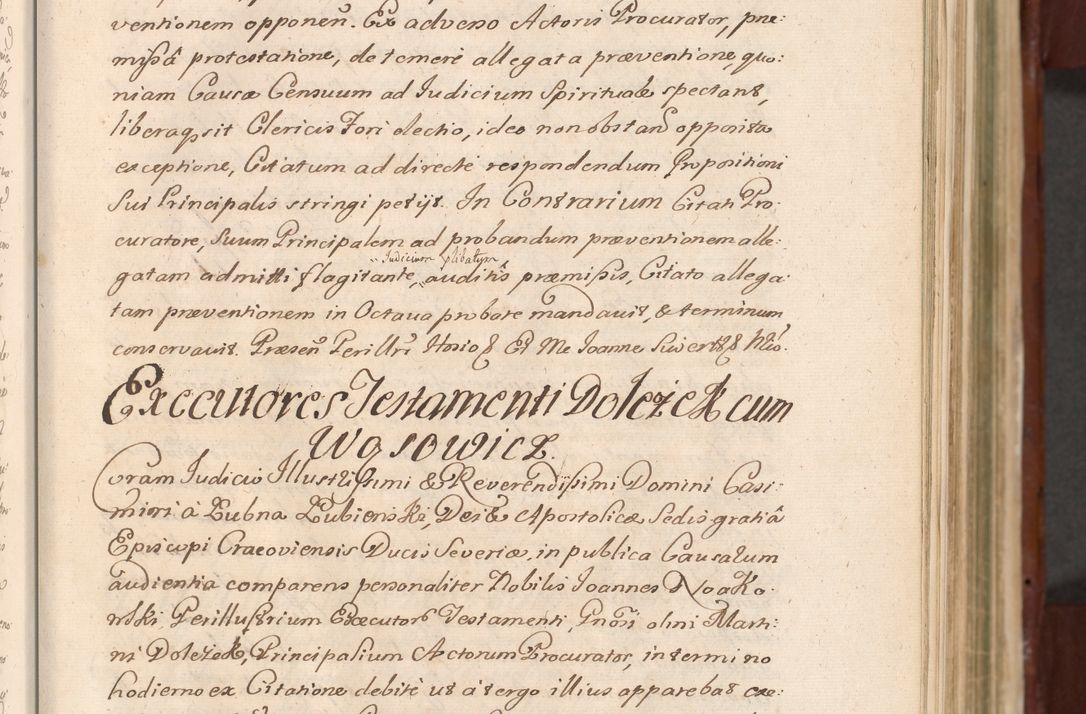 ventionem opponeñ. Ex adveno Actoris Procurator, præ:
mißâ protestatione, de temerè allegata præventione, quo:
niam Causæ Censuum ad Iudicium Spirituale spectant,
liberaq; sit Clericis Fori electio, ideo non obstañ opposita
exceptione, Citatum ad directè respondendum Propositioni
Sui Principalis stringi petijt. In Contrarium Citati Pro:
curatore, Suum Principalem ad probandum præventionem alle:
Iudicium p̃libatum
gatam admitti flagitante, auditis præmißis, Citato allega:
tam præventionem in Octava probare mandavit, & terminum
conservavit. Præseñ Perillr̃i Hosio Et Me Ioanne Siwert
Executores Testamenti Doleżek cum
Wąsowicz.
Coram Iudicio Illustrißimi & Reverendißimi Domini Casi:
miri à Łubna Łubienski, Dei & Apostolicæ Sedis gratiâ
Episcopi Cracoviensis Ducis Severiæ, in publica Causarum
audientia comparens personaliter Nobilis Ioannes Noako:
wski, Perillustrium Executorũ Testamenti, Gñosi olim Marti:
ni Doleżek, Principalium Actorum Procurator, in termino
hodierno ex Citatione debitè ut à tergo illius apparebat exe: